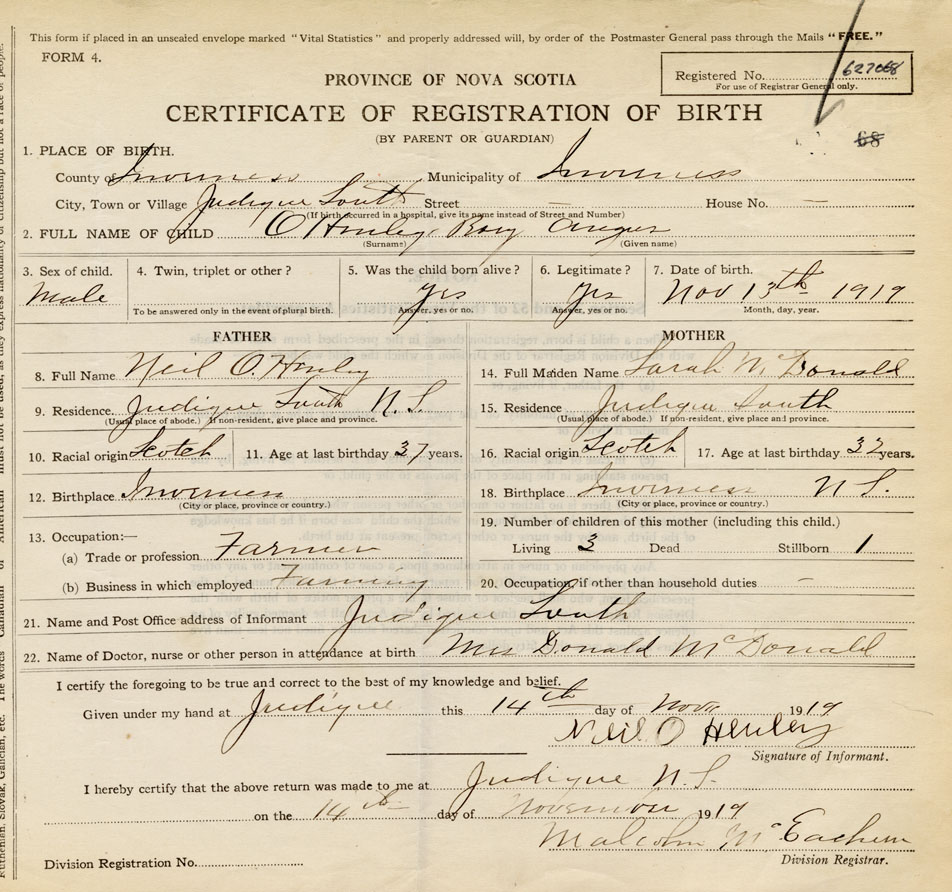 This form if placed in an unsealed envelope marked "Vital Statistics" and properly addressed will, by order of the Postmaster General pass through the Mails "FREE."
FORM 4.
PROVINCE OF NOVA SCOTIA
Registered No. 627068
For use of Registrar General only.
CERTIFICATE OF REGISTRATION OF BIRTH
(BY PARENT OR GUARDIAN)
68
1. PLACE OF BIRTH.
County of Inverness Municipality of Inverness
City, Town or Village Judique South Street — House No. —
(If birth occurred in a hospital, give its name instead of Street and Number)
2. FULL NAME OF CHILD O'Henley, Rory Angus
(Surname) (Given name)
3. Sex of child. 4. Twin, triplet or other? 5. Was the child born alive? 6. Legitimate? 7. Date of birth.
Male yes yes Nov 13th 1919
To be answered only in the event of plural birth. Answer, yes or no. Answer, yes or no. Month, day, year.
FATHER MOTHER
8. Full Name Neil O. Henley 14. Full Maiden Name Sarah McDonald
9. Residence Judique South N.S. 15. Residence Judique South
(Usual place of abode.) If non-resident, give place and province. (Usual place of abode.) If non-resident, give place and province.
10. Racial origin Scotch 11. Age at last birthday 37 years. 16. Racial origin Scotch 17. Age at last birthday 32 years.
12. Birthplace Inverness 18. Birthplace Inverness N.S.
(City or place, province or country.) (City or place, province or country.)
13. Occupation:— 19. Number of children of this mother (including this child.)
(a) Trade or profession Farmer Living 3 Dead Stillborn 1
(b) Business in which employed Farming 20. Occupation, if other than household duties —
21. Name and Post Office address of Informant Judique South
22. Name of Doctor, nurse or other person in attendance at birth Mrs Donald McDonald
I certify the foregoing to be true and correct to the best of my knowledge and belief.
Given under my hand at Judique this 14th day of Nov 1919
Neil O Henley
Signature of Informant.
I hereby certify that the above return was made to me at Judique N.S.
on the 14th day of November 1919
Malcolm McEachern
Division Registration No. Division Registrar.